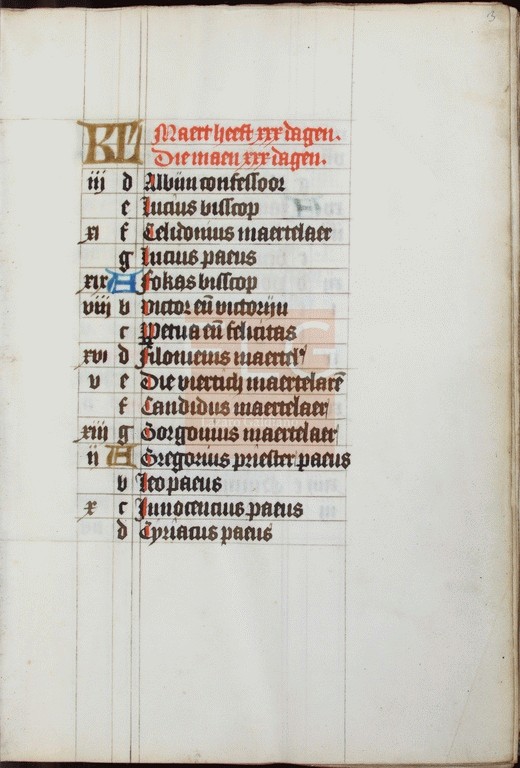 13
KL Maert heeft xxx dagen.
Die maen xxx dagen.
iij d Albijn confessoor
e Lucius bisscop
xi f Celidonius maertelaer
g Lucius paeus
xix A Fokas bisscop
viij b Victor eñ victorijn
c Petua eñ felicitas
xvi d Filomenus maertel
v e Die viertich maertelarē
f Candidus maertelaer
xiij g Gorgonius maertelaer
ij A Gregorius priester paeus
b Leo paeus
x c Innocencius paeus
d Cyriacus paeus